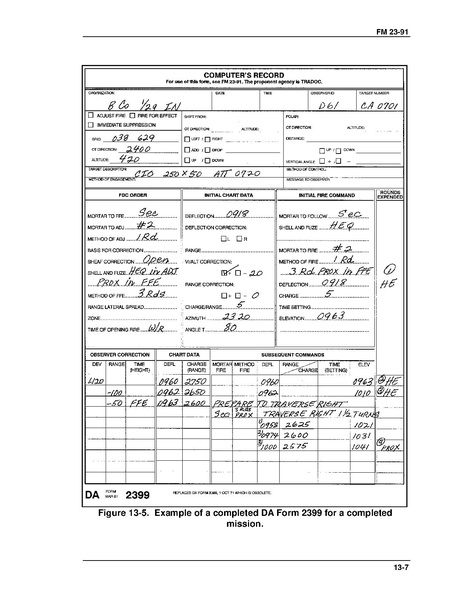 FM 23-91
COMPUTER'S RECORD
For use of this form, see FM 23-91. The proponent agency is TRADOC.
ORGANIZATION DATE TIME OBSERVER ID TARGET NUMBER
B Co 1/29 IN D61 CA 0701
ADJUST FIRE FIRE FOR EFFECT SHIFT FROM: POLAR:
IMMEDIATE SUPPRESSION OT DIRECTION: ALTITUDE: OT DIRECTION: ALTITUDE:
GRID: 038 629 LEFT / RIGHT DISTANCE:
OT DIRECTION: 2400 ADD / DROP UP / DOWN
ALTITUDE: 420 UP / DOWN VERTICAL ANGLE + / -
TARGET DESCRIPTION: CIO 250 X 50 ATT 0920 METHOD OF CONTROL:
METHOD OF ENGAGEMENT: MESSAGE TO OBSERVER:
FDC ORDER INITIAL CHART DATA INITIAL FIRE COMMAND ROUNDS EXPENDED
MORTAR TO FIRE Sec DEFLECTION 0918 MORTAR TO FOLLOW Sec
MORTAR TO ADJ #2 DEFLECTION CORRECTION: SHELL AND FUZE HEQ
METHOD OF ADJ 1 Rd L R
BASIS FOR CORRECTION RANGE MORTAR TO FIRE #2
SHEAF CORRECTION Open VI/ALT CORRECTION: METHOD OF FIRE 1 Rd
SHELL AND FUZE HEQ in ADJ - 20 3 Rd PROX in FFE 1
PROX in FFE RANGE CORRECTION: DEFLECTION 0918 HE
METHOD OF FFE 3 Rds + - 0 CHARGE 5
RANGE LATERAL SPREAD CHARGE/RANGE 5 TIME SETTING
ZONE AZIMUTH 2320 ELEVATION 0963
TIME OF OPENING FIRE W/R ANGLE T 80
OBSERVER CORRECTION CHART DATA SUBSEQUENT COMMANDS
DEV RANGE TIME (HEIGHT) DEFL CHARGE (RANGE) MORTAR FIRE METHOD FIRE DEFL RANGE CHARGE TIME (SETTING) ELEV
L120 0960 2750 0960 0963 2 HE
-100 0962 2650 0962 1010 3 HE
-50 FFE 0963 2600 PREPARE TO TRAVERSE RIGHT
Sec 3 Rds PROX TRAVERSE RIGHT 1 1/2 TURNS
1/ 0958 2625 1021
2/ 0974 2600 1031
3/ 1000 2575 1041 PROX
DA FORM 2399 REPLACES DA FORM 2399, 1 OCT 71 WHICH IS OBSOLETE.
Figure 13-5. Example of a completed DA Form 2399 for a completed
mission.
13-7